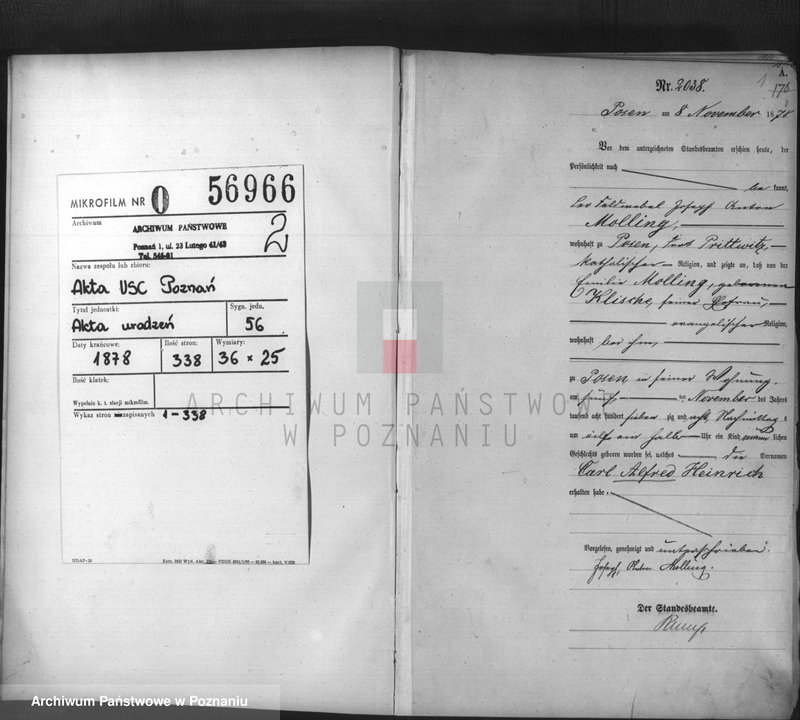 MIKROFILM NR 0 56966
Archiwum
ARCHIWUM PAŃSTWOWE
Poznań 1, ul. 23 Lutego 41/43
Tel. 546-81
2
Nazwa zespołu lub zbioru:
Akta USC Poznań
Tytuł jednostki:
Akta urodzeń
Sygn. jedn.
56
Daty krańcowe:
1878
Ilość stron:
338
Wymiary:
36 × 25
Ilość klatek:
Wypełnia k. t. stacji mikrofilm.
Wykaz stron niezapisanych 1-338
A.
1
Nr. 2038.
Posen am 8 November 1878
Vor dem unterzeichneten Standesbeamten erschien heute, der
Persönlichkeit nach
be kannt,
der Feldwebel Joseph Anton
Molling,
wohnhaft zu Posen, Fort Prittwitz,
katholischer Religion, und zeigte an, daß von der
Emilie Molling, geborenen
Klische, seiner Ehefrau,
evangelischer Religion,
wohnhaft bei ihm,
zu Posen in seiner Wohnung,
am fünf ten November des Jahres
tausend acht hundert sieben zig und acht, Nachmittags
um elf ein halb Uhr ein Kind männlichen
Geschlechts geboren worden sei, welches die Vornamen
Carl Alfred Heinrich
erhalten habe,
Vorgelesen, genehmigt und unterschrieben.
Joseph Anton Molling.
Der Standesbeamte.
ARCHIWUM PAŃSTWOWE
W POZNANIU
Archiwum Państwowe w Poznaniu